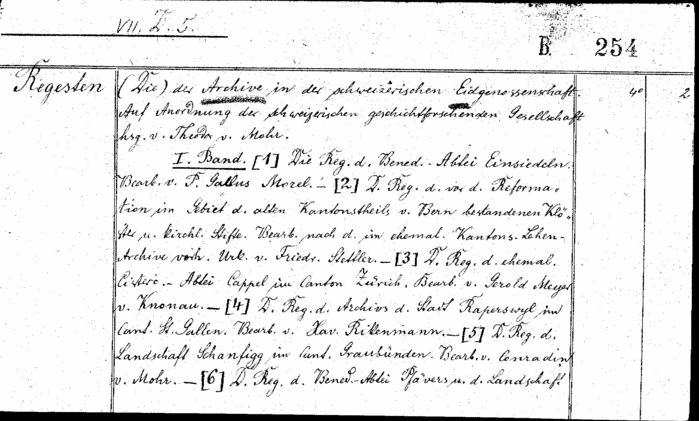 VII. Z. 5.
B. 254
Regesten (Die) der Archive in der schweizerischen Eidgenossenschaft. 4° 2
Auf Anordnung der schweizerischen geschichtforschenden Gesellschaft
hrsg. v. Theodor v. Mohr.
I. Band. [1] Die Reg. d. Bened.-Abtei Einsiedeln.
Bearb. v. P. Gallus Morel. — [2] D. Reg. d. vor d. Reforma-
tion im Gebiet d. alten Kantonstheils v. Bern bestandenen Klö-
ster u. kirchl. Stifte. Bearb. nach d. im ehemal. Kantons-Lehen-
Archive vorh. Urk. v. Friedr. Stettler. — [3] D. Reg. d. ehemal.
Cisterc.-Abtei Cappel im Canton Zürich, Bearb. v. Gerold Meyer
v. Knonau. — [4] D. Reg. d. Archivs d. Stadt Raperswyl im
Cant. St. Gallen. Bearb. v. Xav. Rikenmann. — [5] D. Reg. d.
Landschaft Schanfigg im Cant. Graubünden. Bearb. v. Conradin
v. Mohr. — [6] D. Reg. d. Bened.-Abtei Pfävers u. d. Landschaft